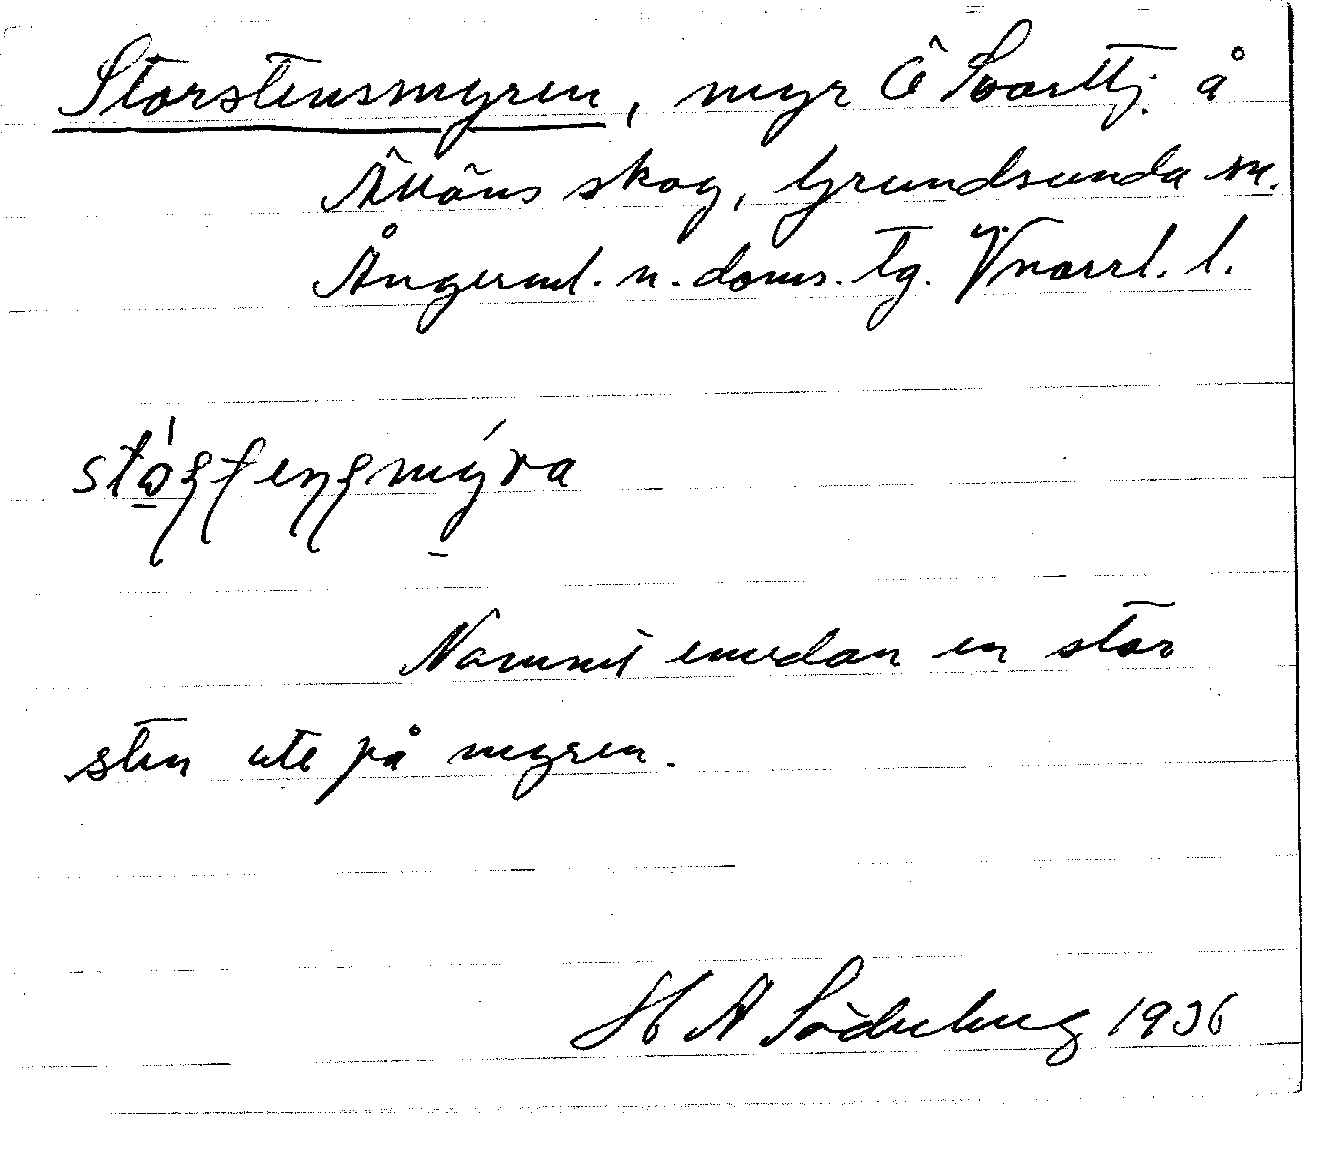 Storstensmyren, myr Ö Svarttj. å
skog, Grundsunda sn.
Ångerml. n. doms. tg. Vnorrl. l.
Namnet emedan en stor
sten ute på myren.
H A Söderberg 1936